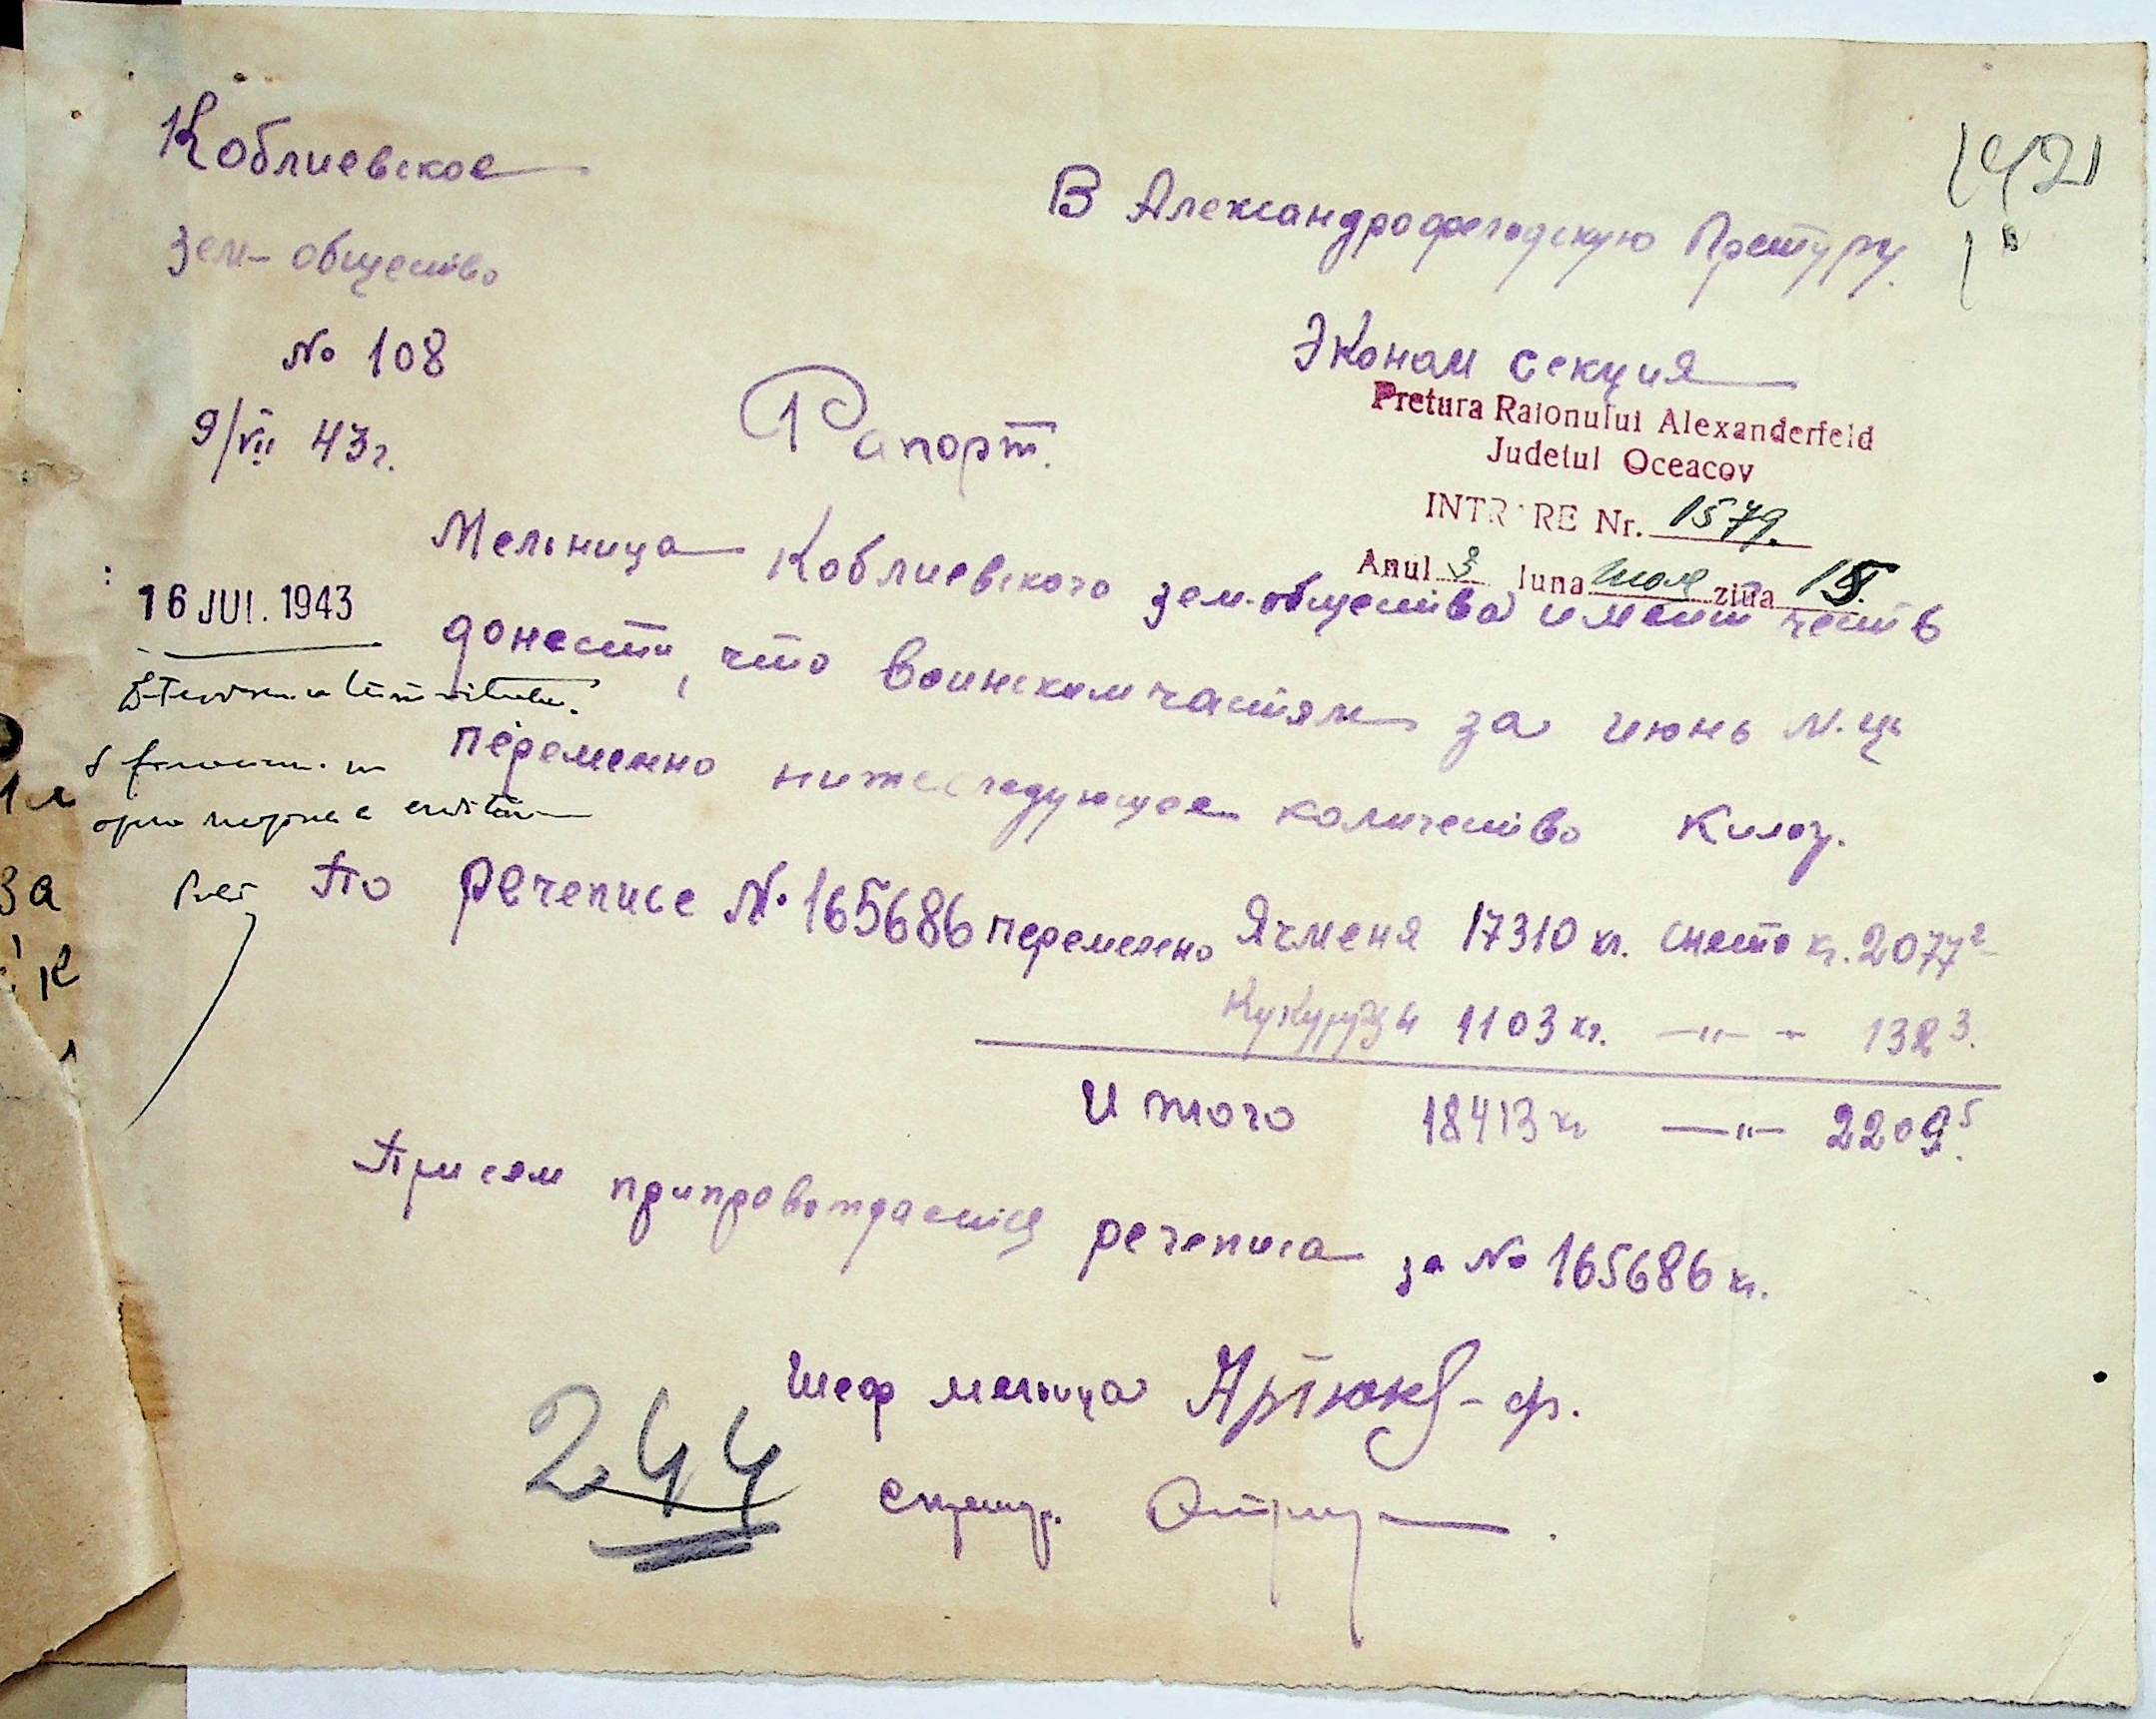 Коблиевское
зем- общество
№ 108
9/VII 43г.
В Александрофельдскую Претуру.
Эконом секция
Pretura Raionului Alexanderfeld
Judetul Oceacov
INTRARE Nr. 1579.
Anul 3 luna июля ziua 15
Рапорт.
Мельница Коблиевского зем-общества имеит честь
донести, что воинским частям за июнь м-ць
переменно нижеследующее количество Килог.
По речеписе № 165686 перемелено Ячменя 17310 кг. снето кг. 2077²
Кукурузы 1103 кг. —"— 132³.
Итого 18413 кг —"— 2209⁵.
При сем припровождается речеписа за № 165686 кг.
Шеф мельница
секретр.
16 JUL. 1943
244